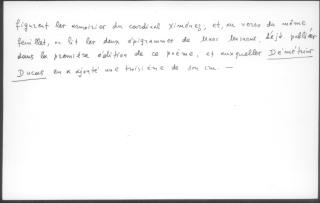 figurent les armoiries du cardinal Ximénez, et, au verso du même
feuillet, on lit les deux épigrammes de Marc Musurus, déjà publiées
dans la première édition de ce poème, et auxquelles Démétrius
Ducas en a ajouté une troisième de son cru. —